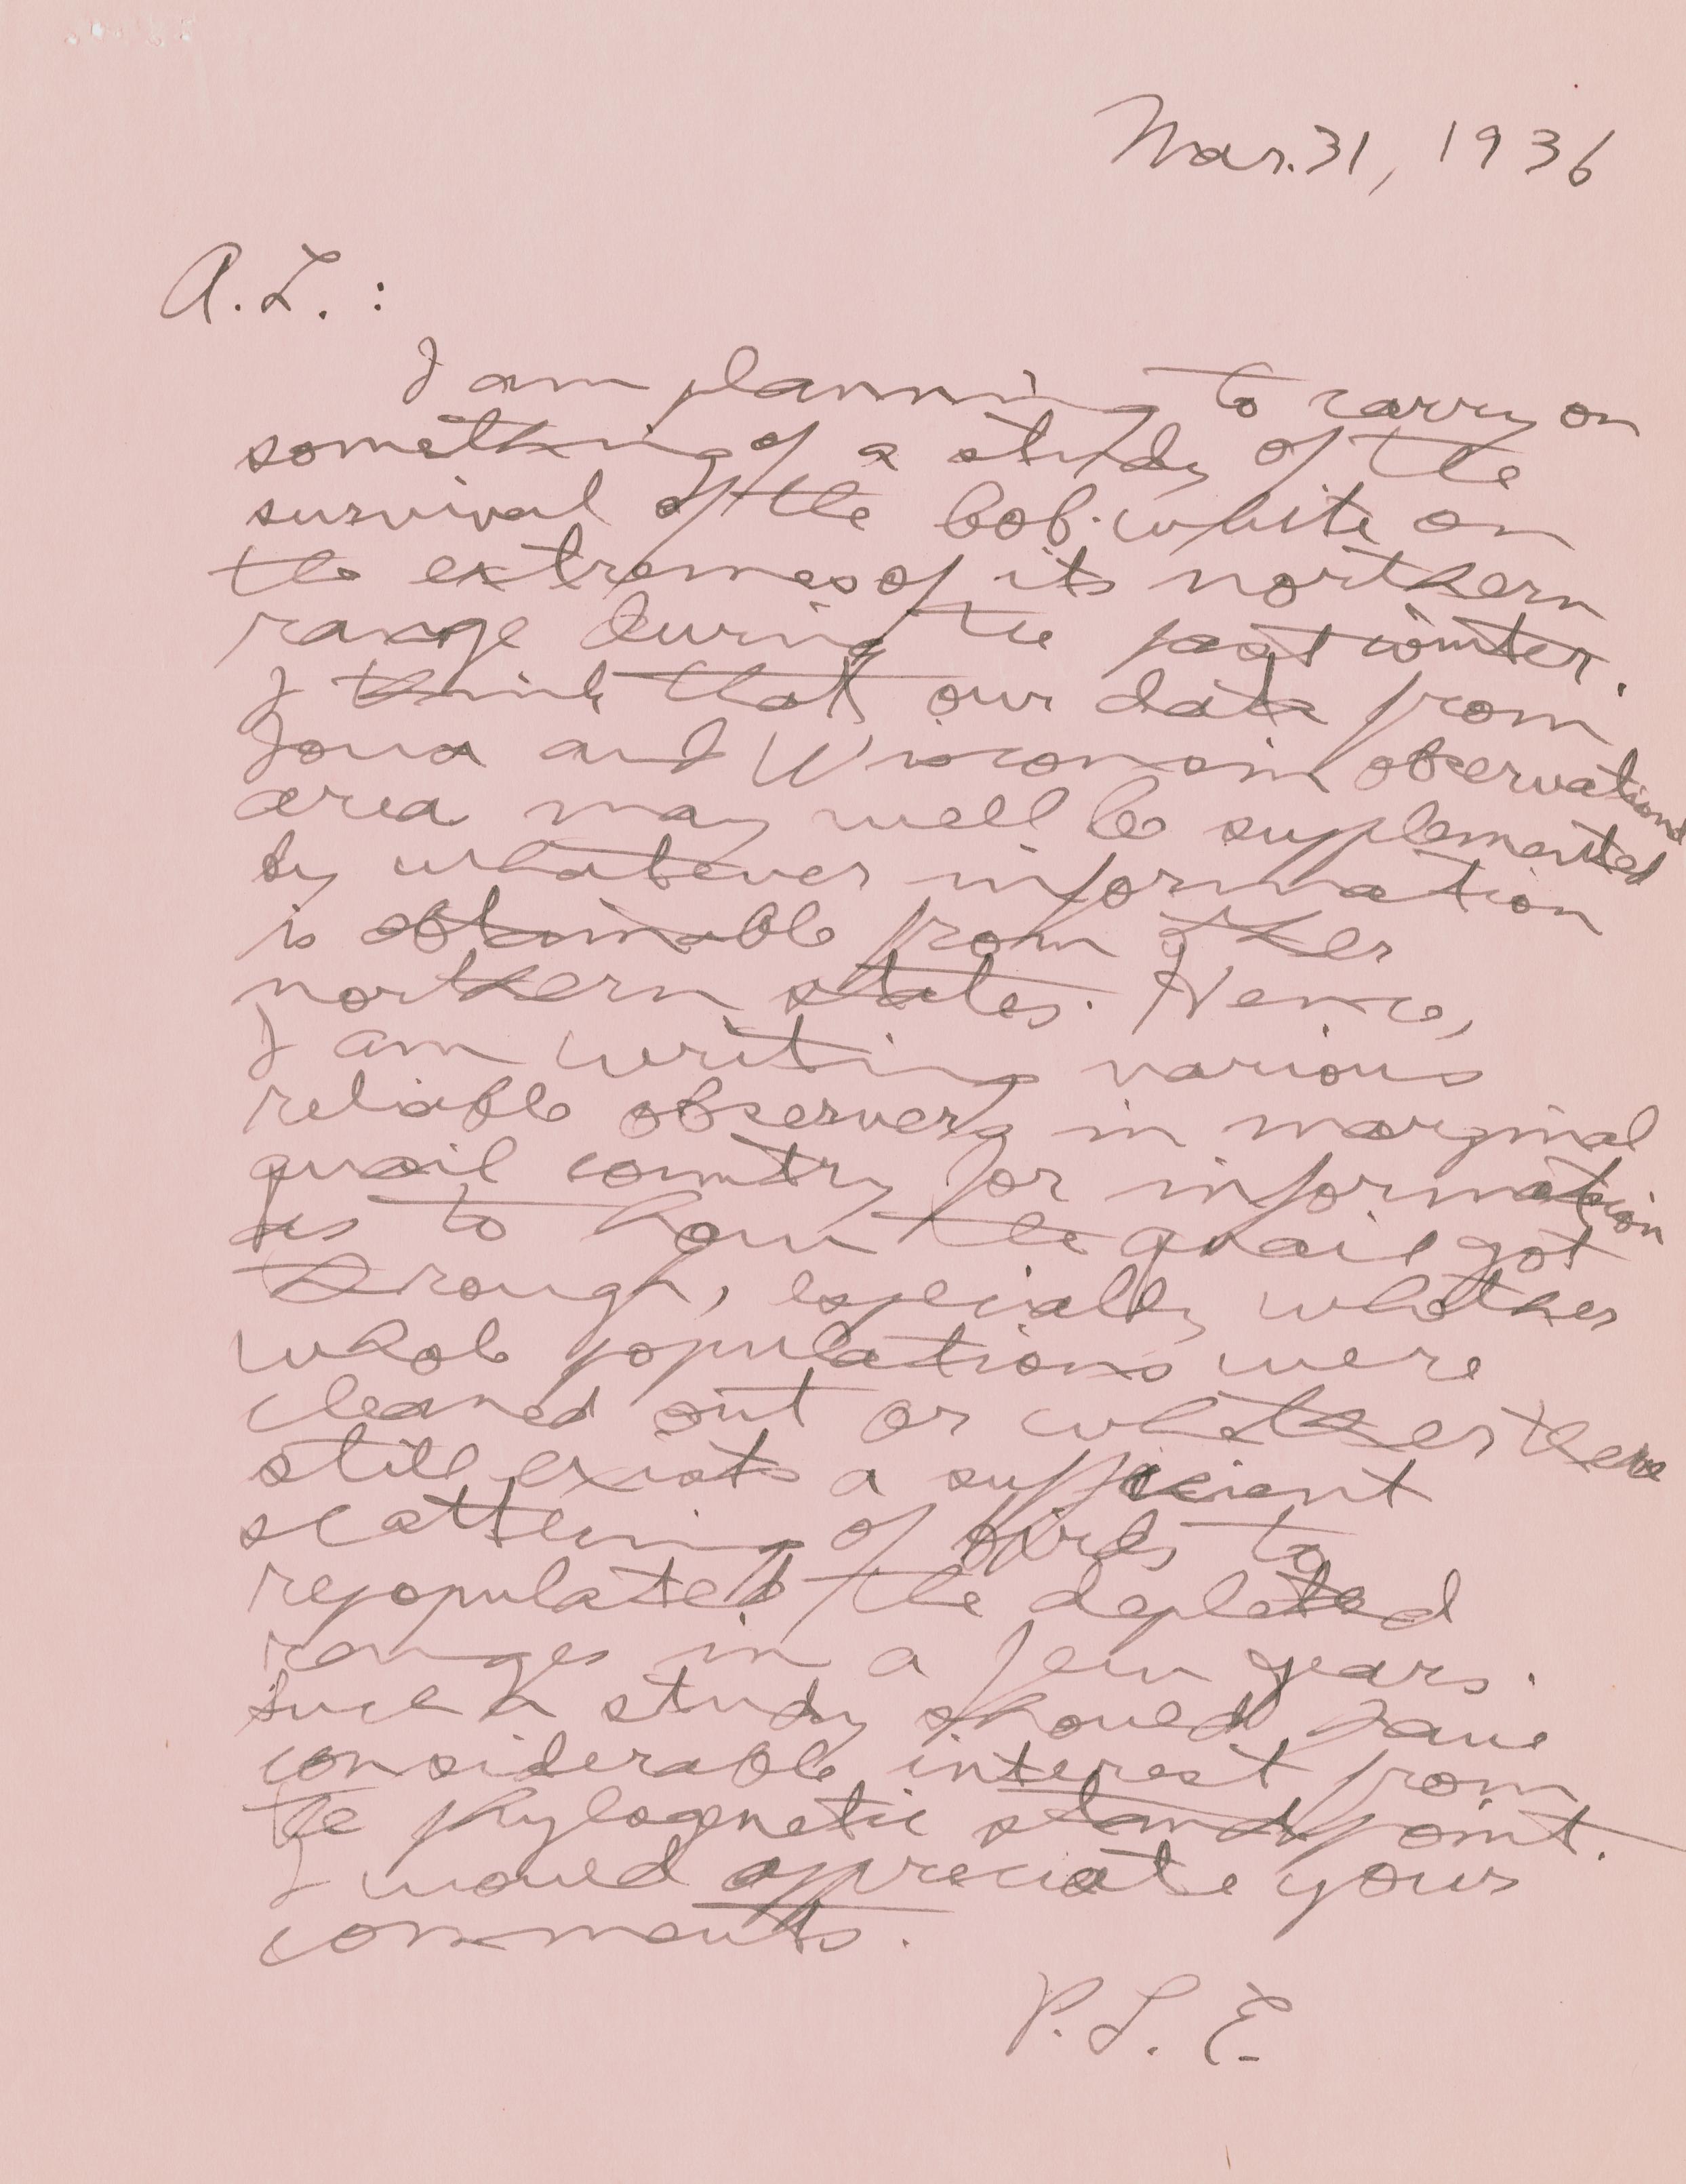 Mar. 31, 1936
A.L. :
I am planning to carry on
something of a study of the
survival of the bob-white on
the extremes of its northern
range during the past winter.
I think that our data from
Iowa and Wisconsin observational
area may well be supplemented
by whatever information
is obtainable from other
northern states. Hence,
I am writing various
reliable observers in marginal
quail country for information
as to how the quail got
through, especially whether
whole populations were
cleaned out or whether there
still exists a sufficient
scattering of birds to
repopulate the depleted
ranges in a few years.
Such a study should have
considerable interest from
the phylogenetic standpoint.
I would appreciate your
comments.
P. L. E.